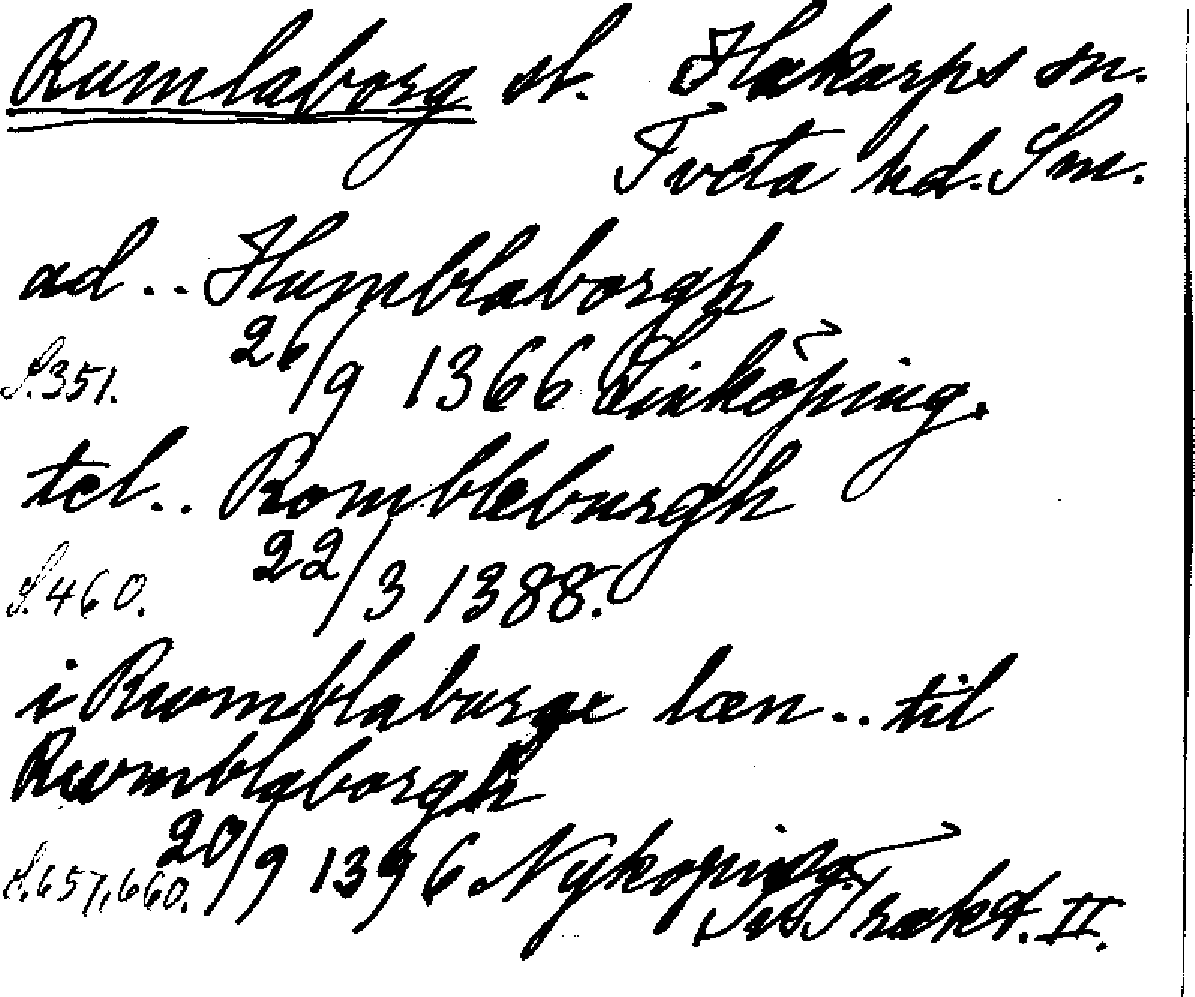 Rumlaborg sl. Hakarps sn.
Tveta hd. Sm.
ad.. Humblaborgh
S.351. 26/9 1366 Linköping.
tel.. Rombleburgh
S.460. 22/3 1388.
i Rwmblaburge læn.. til
Rwmblaborgh
S.657,660. 20/9 1396 Nyköping.
Sv. Trakt. II.